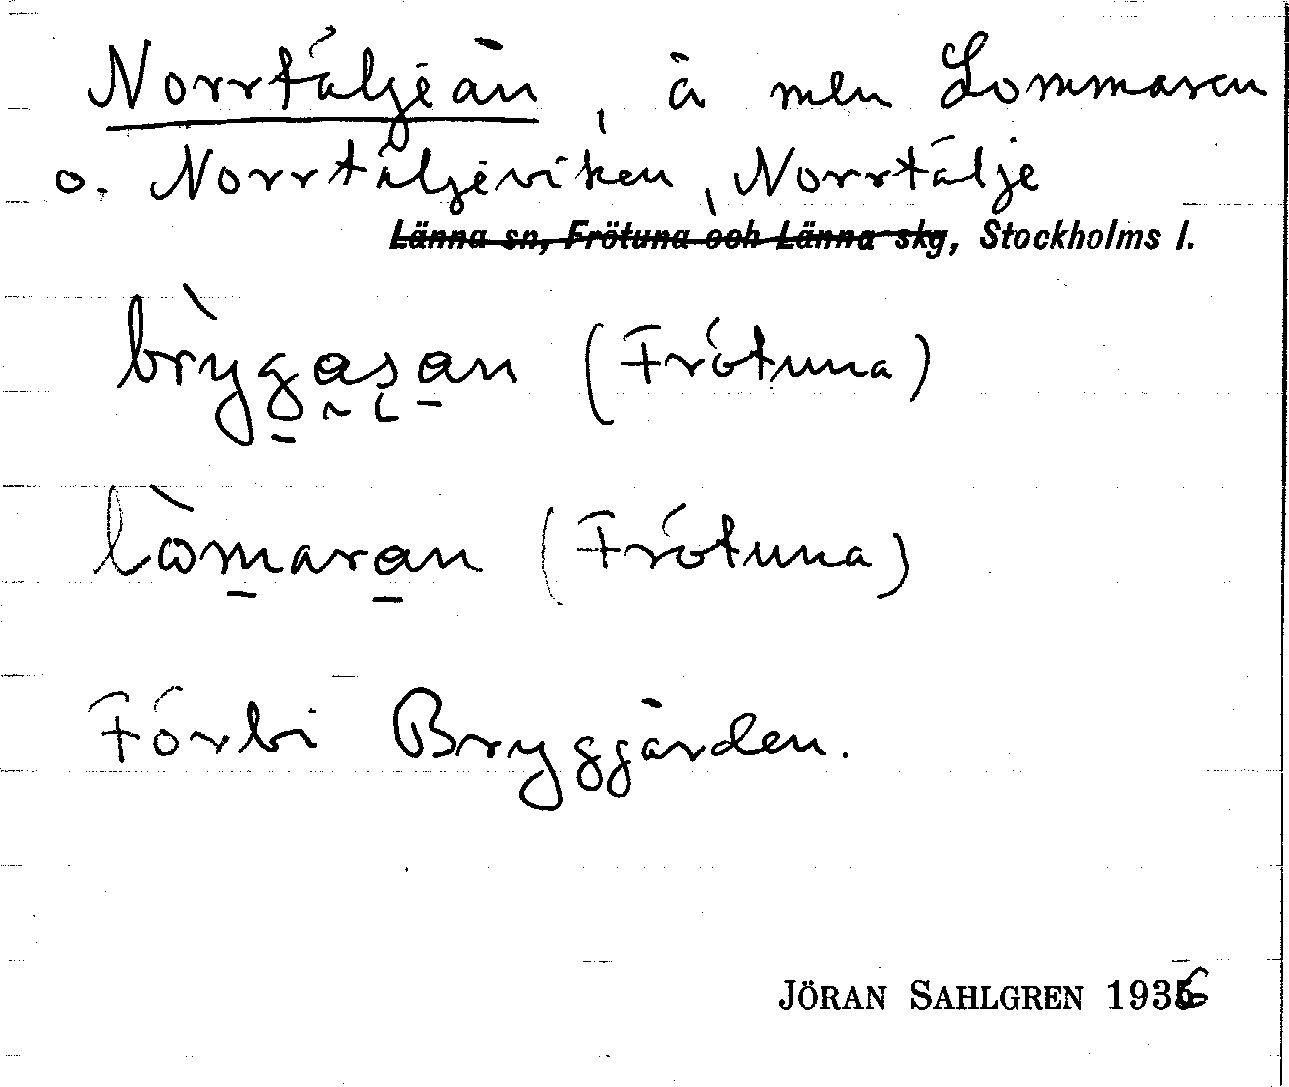 Norrtäljeån, å mln Lommaren
o. Norrtäljeviken, Norrtälje
Länna sn, Frötuna och Länna skg, Stockholms l.
(Frötuna)
lòmaran (Frötuna)
Förbi Bryggården.
JÖRAN SAHLGREN 1936